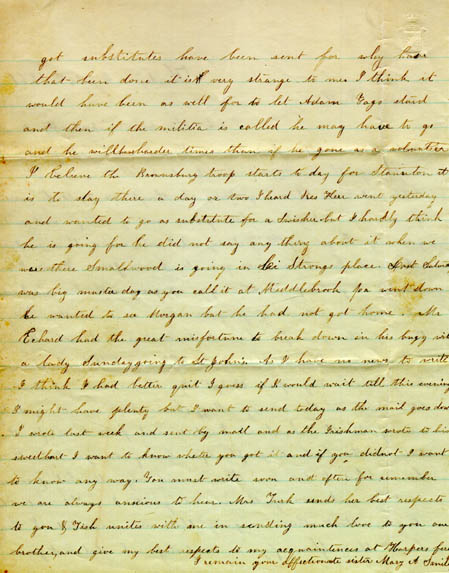 got substitutes have been sent for why have
that been done it is very strange to me I think it
would have been as well for to let Adam stard
and then if the militia is called he may have to go
and he will harder times than if he gone as a volunteer
I believe the Brownsburg troop starts to day for Staunton it
is to stay there a day or two I heard Here went yesterday
and wanted to go as substitute for a Swisher but I hardly think
he is going for he did not say any thing about it when we
were there Smallwood is going in Strongs place
was big muster day as you call it at Middlebrook pa went down
he wanted to see Morgan but he had not got home. Mr
Echard had the great misfortune to break down in his bugy wit
a lady Sunday going to St Johns As I have no news to write
I think I had better quit I guess if I would wait till this evening
I might have plenty but I want to send today as the mail goes down
I wrote last week and sent by mail and as the Irishman wrote to his
sweethart I want to know whether you got it and if you didnot I want
to know any way. You must write soon and often for remember
we are always anxious to hear. Mrs sends her best respects
to you & Tish unites with me in sending much love to you our
brother, and give my best respects to my acquaintances at Harpers fer
I remain your affectionate sister Mary A Smil